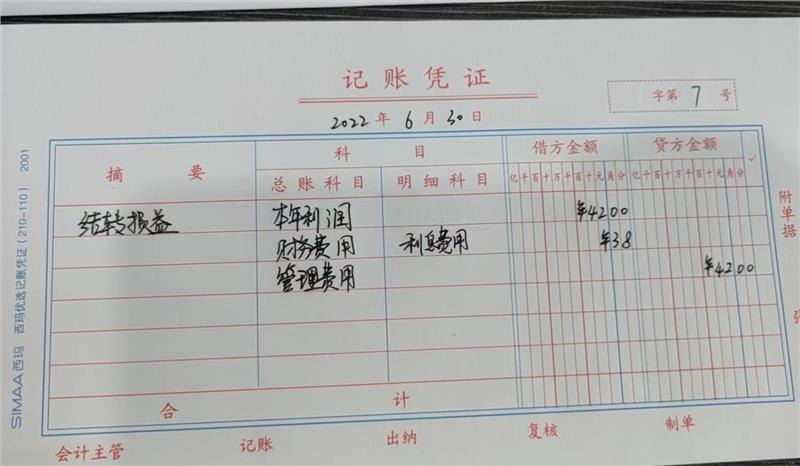 记账凭证
字第 7 号
2022 年 6 月 30 日
摘要 科目 借方金额 贷方金额 ✓
总账科目 明细科目 亿千百十万千百十元角分 亿千百十万千百十元角分
结转损益 本年利润 ¥4200
财务费用 利息费用 ¥38
管理费用 ¥4200
合计
附单据 张
会计主管 记账 出纳 复核 制单
SIMAA 西玛 西玛优选记账凭证(210-110) 2001